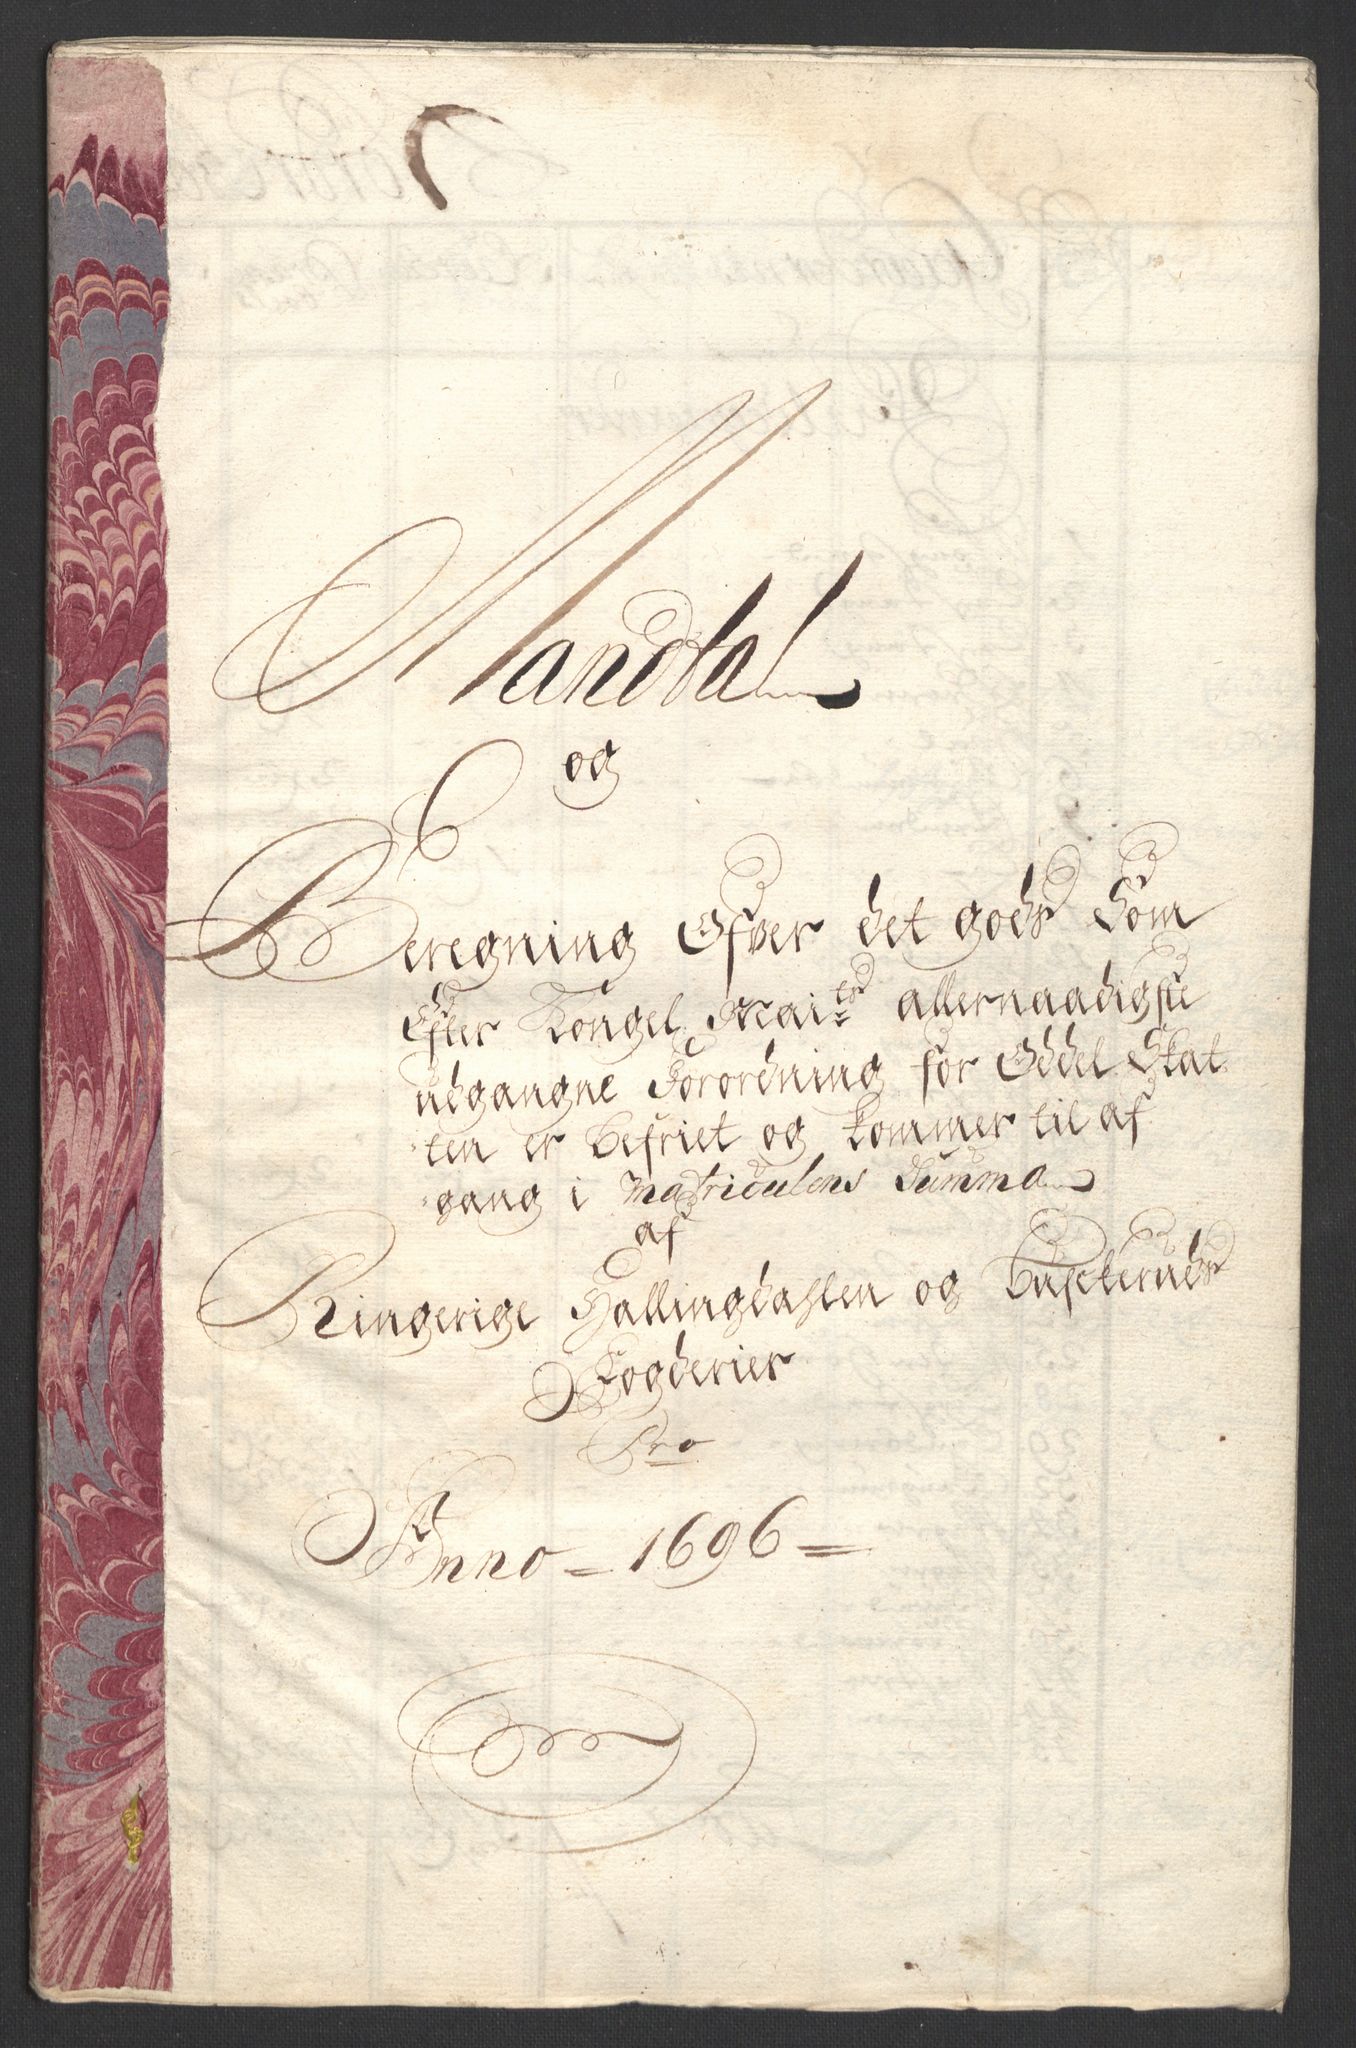 Mandtal
og
Beregning Ofver det gods Som
Efter Kongel. Mai:ts allernaadigste
udgangne Forordning for Oddel Skat
ten er befriet og kommer til af
gang i Matriculens Summa
af
Ringerige Hallingdahlen og Buscheruds
Fogderier
Pro
Anno = 1696 =